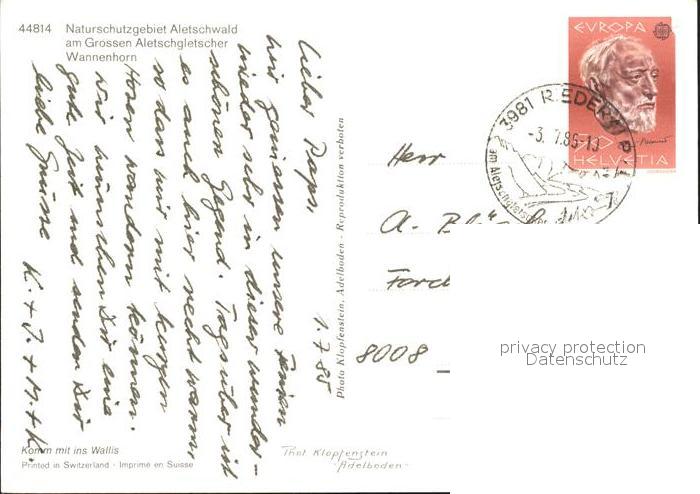 44814 Naturschutzgebiet Aletschwald
am Grossen Aletschgletscher
Wannenhorn
1.7.85
Lieber Papi
wir geniessen unsere Ferien
wieder sehr in dieser wunder-
schönen Gegend. Tagsüber ist
es auch hier recht warm,
so dass wir mit kurzen
Hosen wandern können.
Wir wünschen Dir eine
gute Zeit und senden Dir
liebe Grüsse
K. + J. + M. + K.
Komm mit ins Wallis
Printed in Switzerland - Imprime en Suisse
Photo Klopfenstein, Adelboden - Reproduktion verboten
Phot Klopfenstein
-Adelboden-
EVROPA
90
HELVETIA
3981 RIEDERALP
-3.7.85-19
am Aletschgletscher
Herr
A.
Forch
8008
privacy protection
Datenschutz